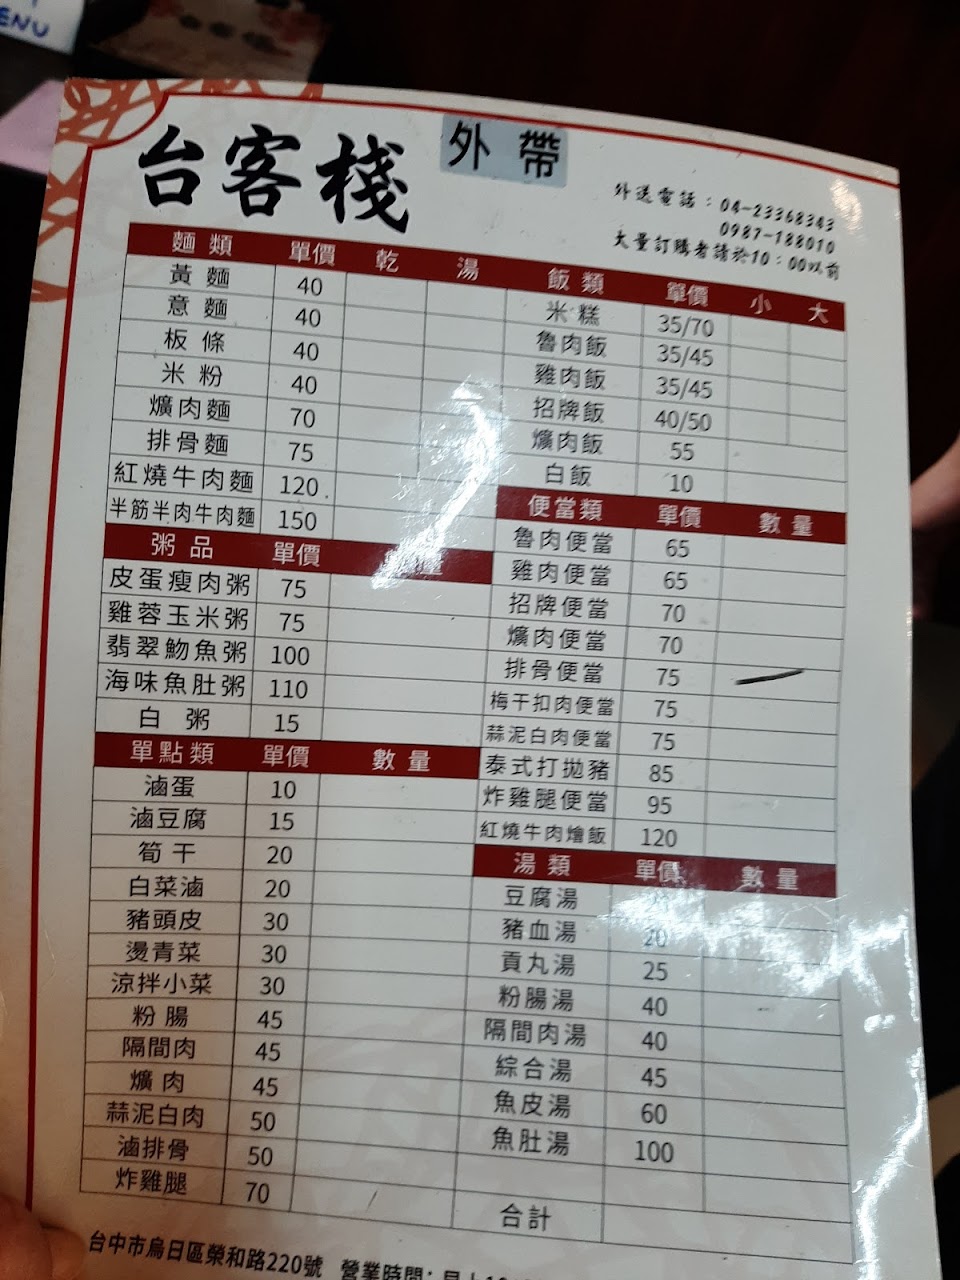 MENU
台客棧
外帶
外送電話：04-23368343
0987-188010
大量訂購者請於10：00以前
麵類 單價 乾 湯
黃麵 40
意麵 40
板條 40
米粉 40
爌肉麵 70
排骨麵 75
紅燒牛肉麵 120
半筋半肉牛肉麵 150
粥品 單價
皮蛋瘦肉粥 75
雞蓉玉米粥 75
翡翠魩魚粥 100
海味魚肚粥 110
白粥 15
單點類 單價 數量
滷蛋 10
滷豆腐 15
筍干 20
白菜滷 20
豬頭皮 30
燙青菜 30
涼拌小菜 30
粉腸 45
隔間肉 45
爌肉 45
蒜泥白肉 50
滷排骨 50
炸雞腿 70
飯類 單價 小 大
米糕 35/70
魯肉飯 35/45
雞肉飯 35/45
招牌飯 40/50
爌肉飯 55
白飯 10
便當類 單價 數量
魯肉便當 65
雞肉便當 65
招牌便當 70
爌肉便當 70
排骨便當 75
梅干扣肉便當 75
蒜泥白肉便當 75
泰式打拋豬 85
炸雞腿便當 95
紅燒牛肉燴飯 120
湯類 單價 數量
豆腐湯
豬血湯 20
貢丸湯 25
粉腸湯 40
隔間肉湯 40
綜合湯 45
魚皮湯 60
魚肚湯 100
合計
台中市烏日區榮和路220號 營業時間：早上10